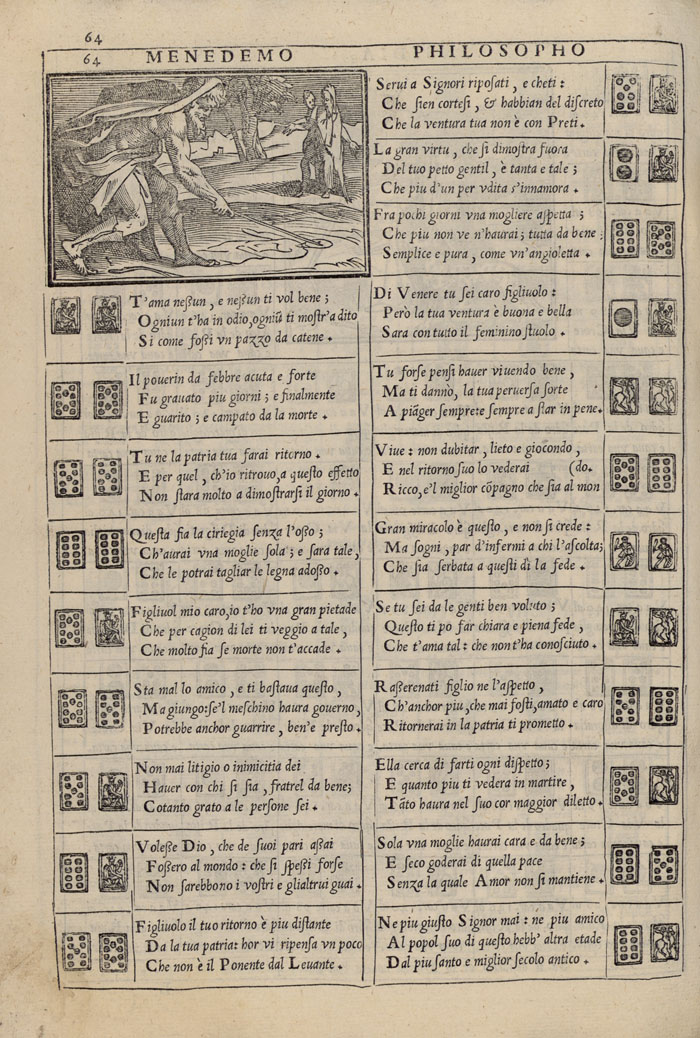 64
64 MENEDEMO PHILOSOPHO
T'ama neßun, e neßun ti vol bene;
Ogniun t'ha in odio, ogniũ ti mostr'a dito
Si come foßi vn pazzo da catene.
Il pouerin da febbre acuta e forte
Fu grauato piu giorni; e finalmente
E guarito; e campato da la morte.
Tu ne la patria tua farai ritorno.
E per quel, ch'io ritrouo, a questo effetto
Non stara molto a dimostrarsi il giorno.
Questa fia la ciriegia senza l'oßo;
Ch'aurai vna moglie sola; e sara tale,
Che le potrai tagliar le legna adoßo.
Figliuol mio caro, io t'ho vna gran pietade
Che per cagion di lei ti veggio a tale,
Che molto fia se morte non t'accade.
Sta mal lo amico, e ti bastaua questo,
Ma giungo: se'l meschino haura gouerno,
Potrebbe anchor guarrire, ben'e presto.
Non mai litigio o inimicitia dei
Hauer con chi si sia, fratel da bene;
Cotanto grato a le persone sei.
Voleße Dio, che de suoi pari aßai
Foßero al mondo: che si speßi forse
Non sarebbono i vostri e glialtrui guai.
Figliuolo il tuo ritorno è piu distante
Da la tua patria: hor vi ripensa vn poco
Che non è il Ponente dal Leuante.
Serui a Signori riposati, e cheti:
Che sien cortesi, & habbian del discreto
Che la ventura tua non è con Preti.
La gran virtu, che si dimostra fuora
Del tuo petto gentil, è tanta e tale;
Che piu d'un per vdita s'innamora.
Fra pochi giorni vna mogliere aspetta;
Che piu non ve n'haurai; tutta da bene;
Semplice e pura, come vn'angioletta.
Di Venere tu sei caro figliuolo:
Però la tua ventura è buona e bella
Sara con tutto il feminino stuolo.
Tu forse pensi hauer viuendo bene,
Ma ti dannò, la tua peruersa sorte
A piãger sempre: e sempre a star in pene.
Viue: non dubitar, lieto e giocondo,
E nel ritorno suo lo vederai (do.
Ricco, e'l miglior cõpagno che sia al mon
Gran miracolo è questo, e non si crede:
Ma sogni, par d'infermi a chi l'ascolta;
Che sia serbata a questi di la fede.
Se tu sei da le genti ben voluto;
Questo ti pò far chiara e piena fede,
Che t'ama tal: che non t'ha conosciuto.
Raßerenati figlio ne l'aspetto,
Ch'anchor piu, che mai fosti, amato e caro
Ritornerai in la patria ti prometto.
Ella cerca di farti ogni dispetto;
E quanto piu ti vedera in martire,
Tãto haura nel suo cor maggior diletto.
Sola vna moglie haurai cara e da bene;
E seco goderai di quella pace
Senza la quale Amor non si mantiene.
Ne piu giusto Signor mai: ne piu amico
Al popol suo di questo hebb' altra etade
Dal piu santo e miglior secolo antico.